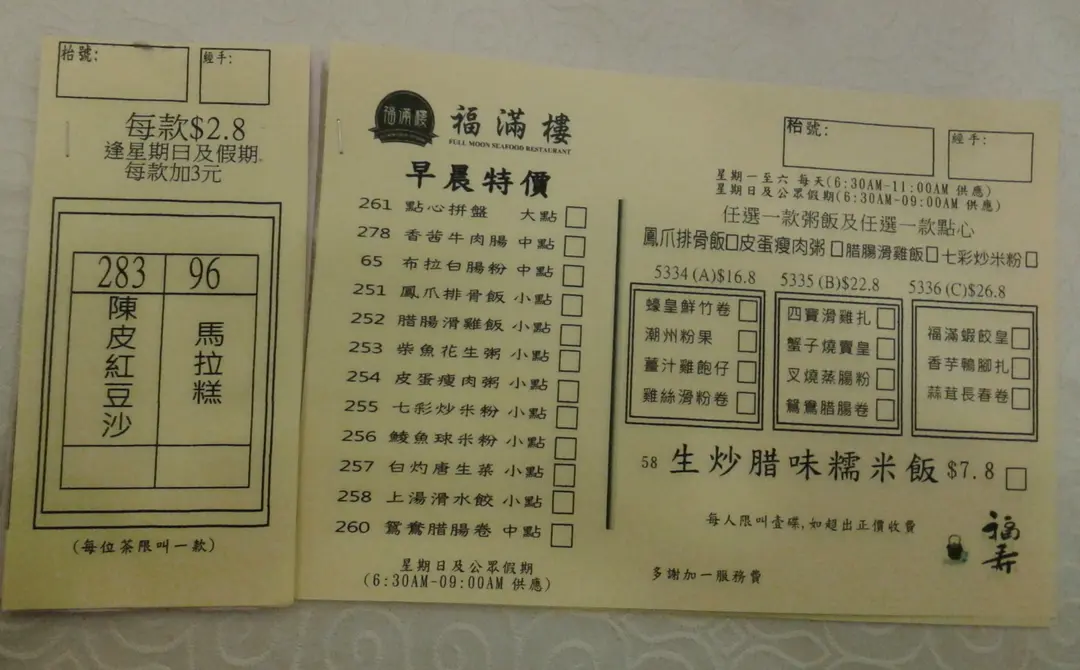 枱號:
經手:
每款$2.8
逢星期日及假期
每款加3元
283 96
陳皮紅豆沙
馬拉糕
(每位茶限叫一款)
福滿樓
福滿樓
FULL MOON SEAFOOD RESTAURANT
早晨特價
261 點心拼盤 大點
278 香茜牛肉腸 中點
65 布拉白腸粉 中點
251 鳳爪排骨飯 小點
252 腊腸滑雞飯 小點
253 柴魚花生粥 小點
254 皮蛋瘦肉粥 小點
255 七彩炒米粉 小點
256 鯪魚球米粉 小點
257 白灼唐生菜 小點
258 上湯滑水餃 小點
260 鴛鴦腊腸卷 中點
星期日及公眾假期
(6:30AM-09:00AM 供應)
枱號:
經手:
星期一至六 每天(6:30AM-11:00AM 供應)
星期日及公眾假期(6:30AM-09:00AM 供應)
任選一款粥飯及任選一款點心
鳳爪排骨飯 皮蛋瘦肉粥 腊腸滑雞飯 七彩炒米粉
5334 (A)$16.8
蠔皇鮮竹卷
潮州粉果
薑汁雞飽仔
雞絲滑粉卷
5335 (B)$22.8
四寶滑雞扎
蟹子燒賣皇
叉燒蒸腸粉
鴛鴦腊腸卷
5336 (C)$26.8
福滿蝦餃皇
香芋鴨腳扎
蒜茸長春卷
58 生炒腊味糯米飯 $7.8
每人限叫壹碟,如超出正價收費
多謝加一服務費
福壽